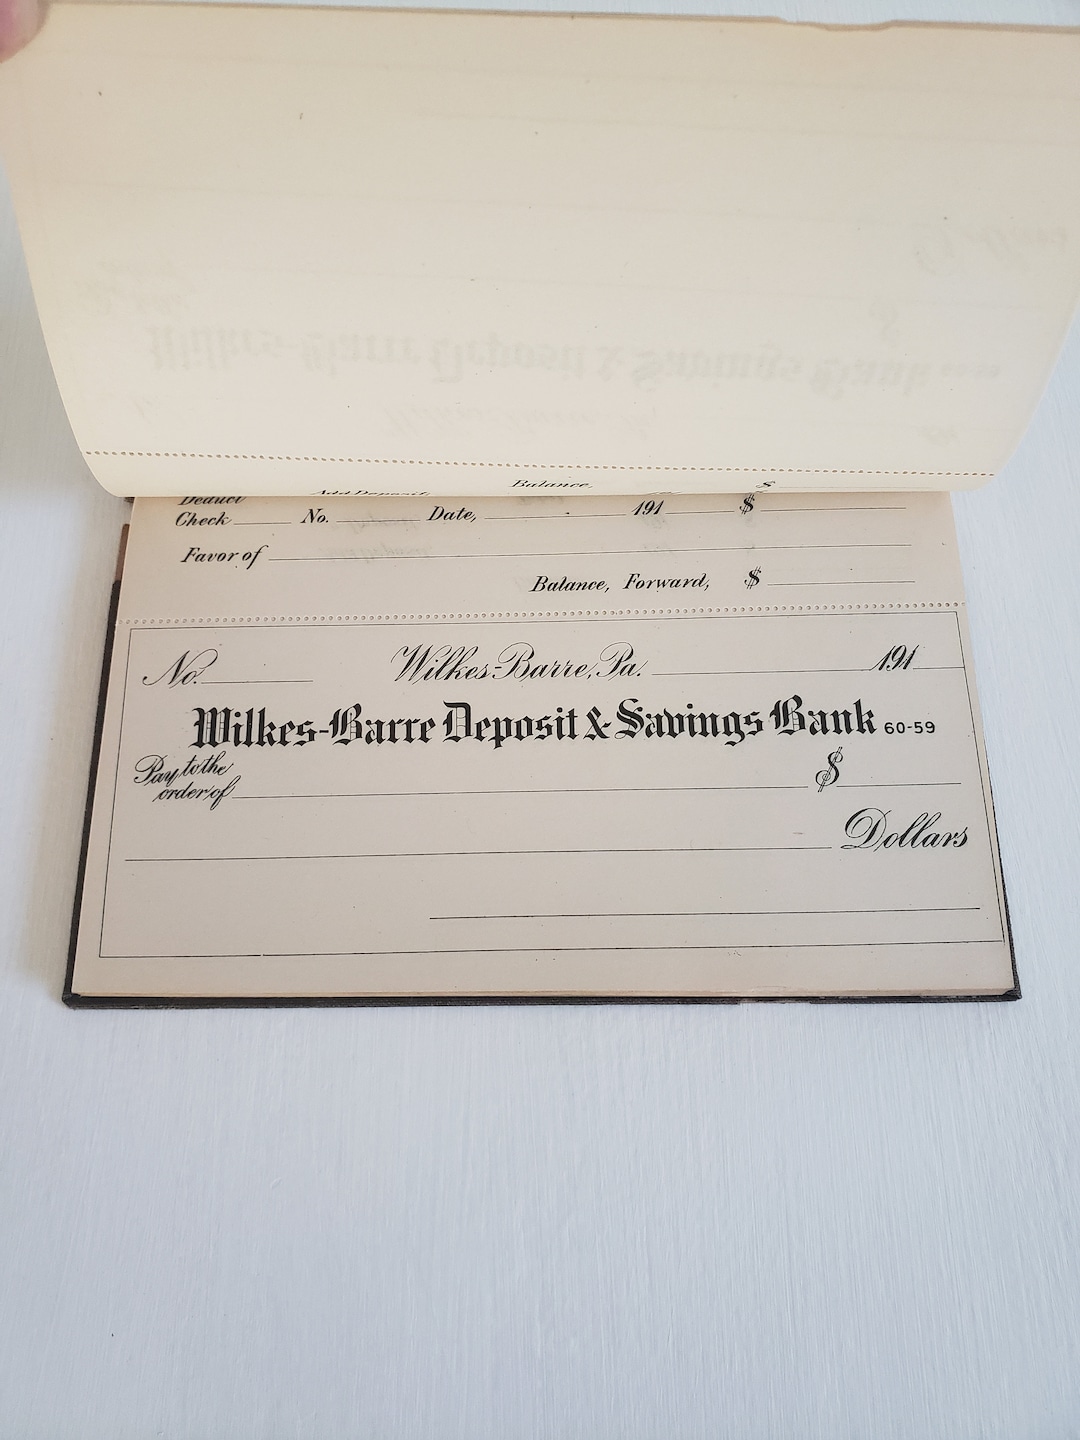 Balance, $
Deduct Add Deposit,
Check No. Date, 191 $
Favor of
Balance, Forward, $
No. Wilkes-Barre, Pa. 191
Wilkes-Barre Deposit & Savings Bank 60-59
Pay to the
order of $
Dollars